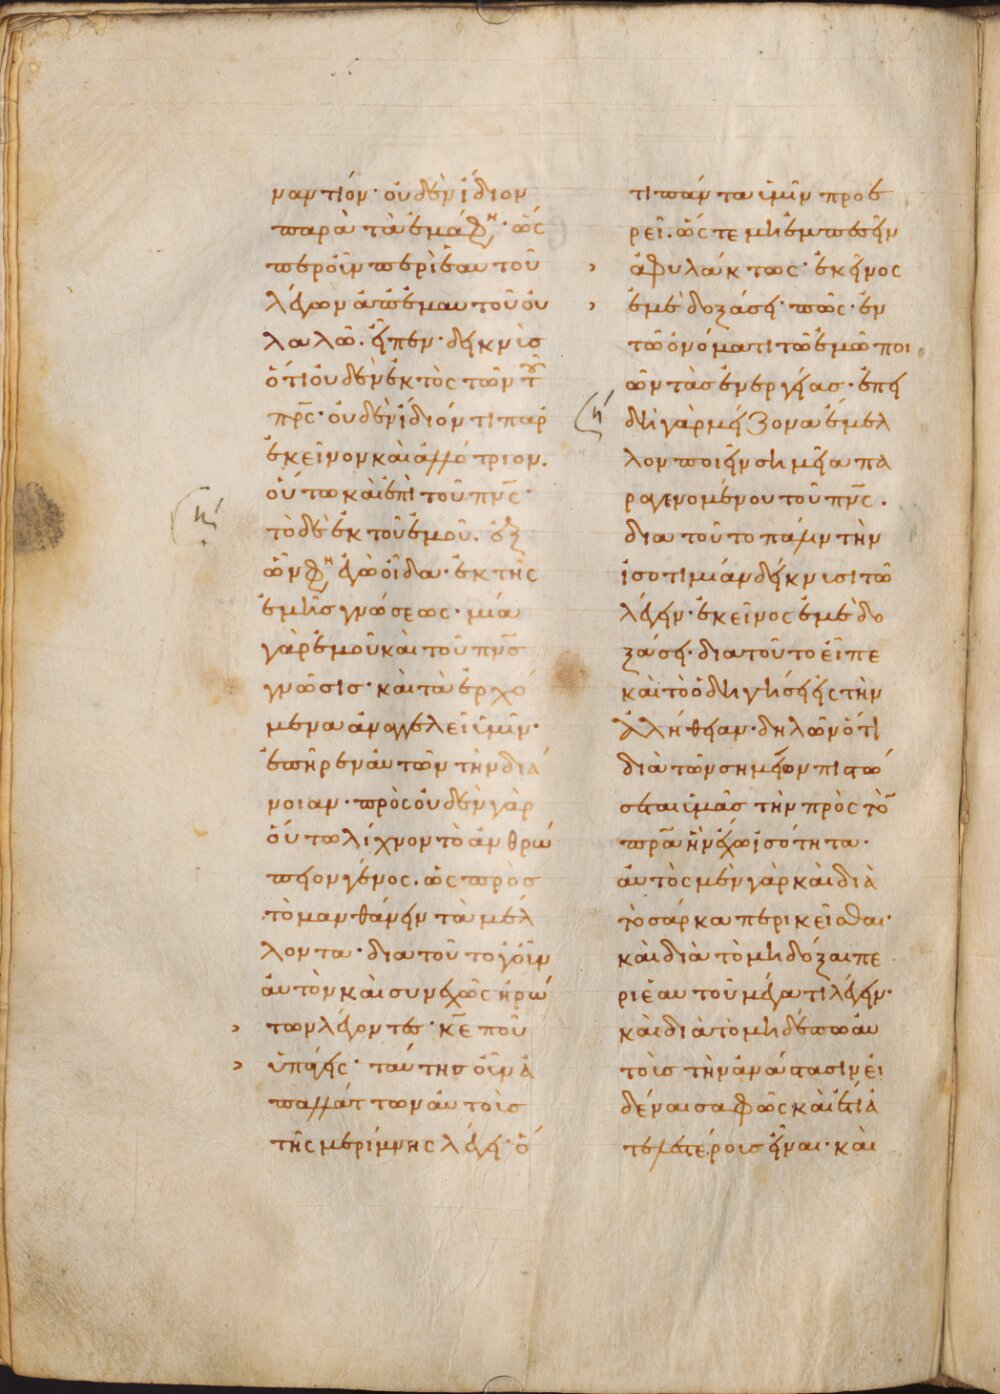 ναντίον· οὐδὲν ἴδιον
παρὰ τὰ ἐμά φη· ὥς
περ οὖν περὶ ἑαυτοῦ
λέγων ἀπ' ἐμαυτοῦ οὐ
λαλῶ. εἶπεν· δείκνὺς
ὅτι οὐδὲν ἐκτὸς τῶν τοῦ
πρς· οὐδὲν ἴδιόν τι παρ'
ἐκεῖνον καὶ ἀλλότριον.
οὕτω καὶ ἐπὶ τοῦ πνς·
τὸ δὲ ἐκ τοῦ ἐμοῦ. ἐξ
ὧν φη ἐγὼ οἶδα· ἐκ τῆς
ἐμῆς γνώσεως· μία
γὰρ ἐμοῦ καὶ τοῦ πνς
γνῶσις· καὶ τὰ ἐρχό
μενα ἀναγγελεῖ ὑμῖν·
ἐπῆρεν αὐτῶν τὴν διά
νοιαν· πρὸς οὐδὲν γὰρ
οὕτω λίχνον τὸ ἀνθρώ
πειον γένος. ὡς πρὸς
τὸ μανθάνειν τὰ μέλ
λοντα· διατοῦτο γοῦν
αὐτὸν καὶ συνεχῶς ἠρώ
των λέγοντες· κε ποῦ
ὑπάγεις· ταύτης οὖν ἀ
παλλάττων αὐτοὺς
τῆς μερίμνης λέγει· ὅ
τι πάντα ὑμῖν προε
ρεῖ. ὥστε μὴ ἐμπεσεῖν
ἀφυλάκτως· ἐκεῖνος
ἐμὲ δοξάσει· πῶς· ἐν
τῶ ὀνόματι τῶ ἐμῶ ποι
ῶν τὰς ἐνεργείας· ἐπει
δὴ γὰρ μείζονα ἔμελ
λον ποιεῖν σημεῖα πα
ραγενομένου τοῦ πνς.
διατοῦτο πάλιν τὴν
ἰσοτιμίαν δείκνυσι τῶ
λέγειν· ἐκεῖνος ἐμὲ δο
ξάσει· διατοῦτο εἶπε
καὶ τὸ ὁδηγήσει εἰς τὴν
ἀλήθειαν· δηλῶν ὅτι
διὰ τῶν σημείων πιστώ
σεται ὑμᾶς τὴν πρὸς τὸν
πρα ἣν ἔχω ἰσότητα·
αὐτὸς μὲν γὰρ καὶ διὰ
τὸ σάρκα περικεῖσθαι·
καὶ διὰ τὸ μὴ δόξαι πε
ρὶ ἑαυτοῦ μέγα τι λέγειν·
καὶ διὰ τὸ μηδέπω αὐ
τοὺς τὴν ἀνάστασιν εἰ
δέναι σαφῶς καὶ ἔτι ἀ
τελεστέροις εἶναι· καὶ